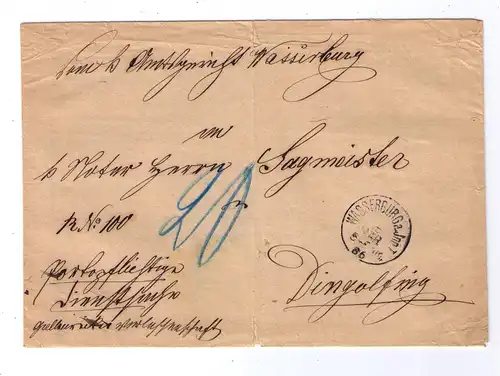 Vom k Amtsgericht Wasserburg
an
k Notar Herrn Sagmeister
R. No 100
20
in
WASSERBURG a. Inn
86
Portopflichtige
Dienstsache
Dingolfing
Verlassenschaft